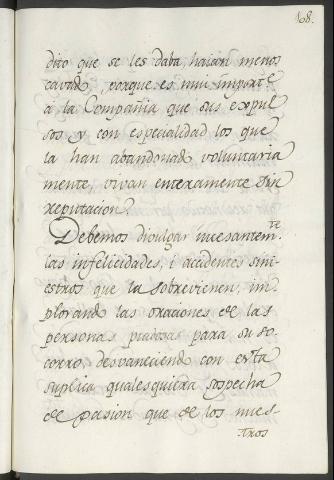 108.
dito que se les daba, haian menos
cavado, porque es mui importe
a la Compañia que sus expul
sos y con especialidad los que
la han abandonado voluntaria
mente, vivan enteramente sin
reputacion.
Debemos divulgar incesantemte
las infelicidades, i accidentes sini
estros que la sobrevienen, im
plorando las oraciones de las
personas piadosas para su so
corro, desvaneciendo con esta
suplica qualesquiera sospecha
de pasion que de los nues
tros